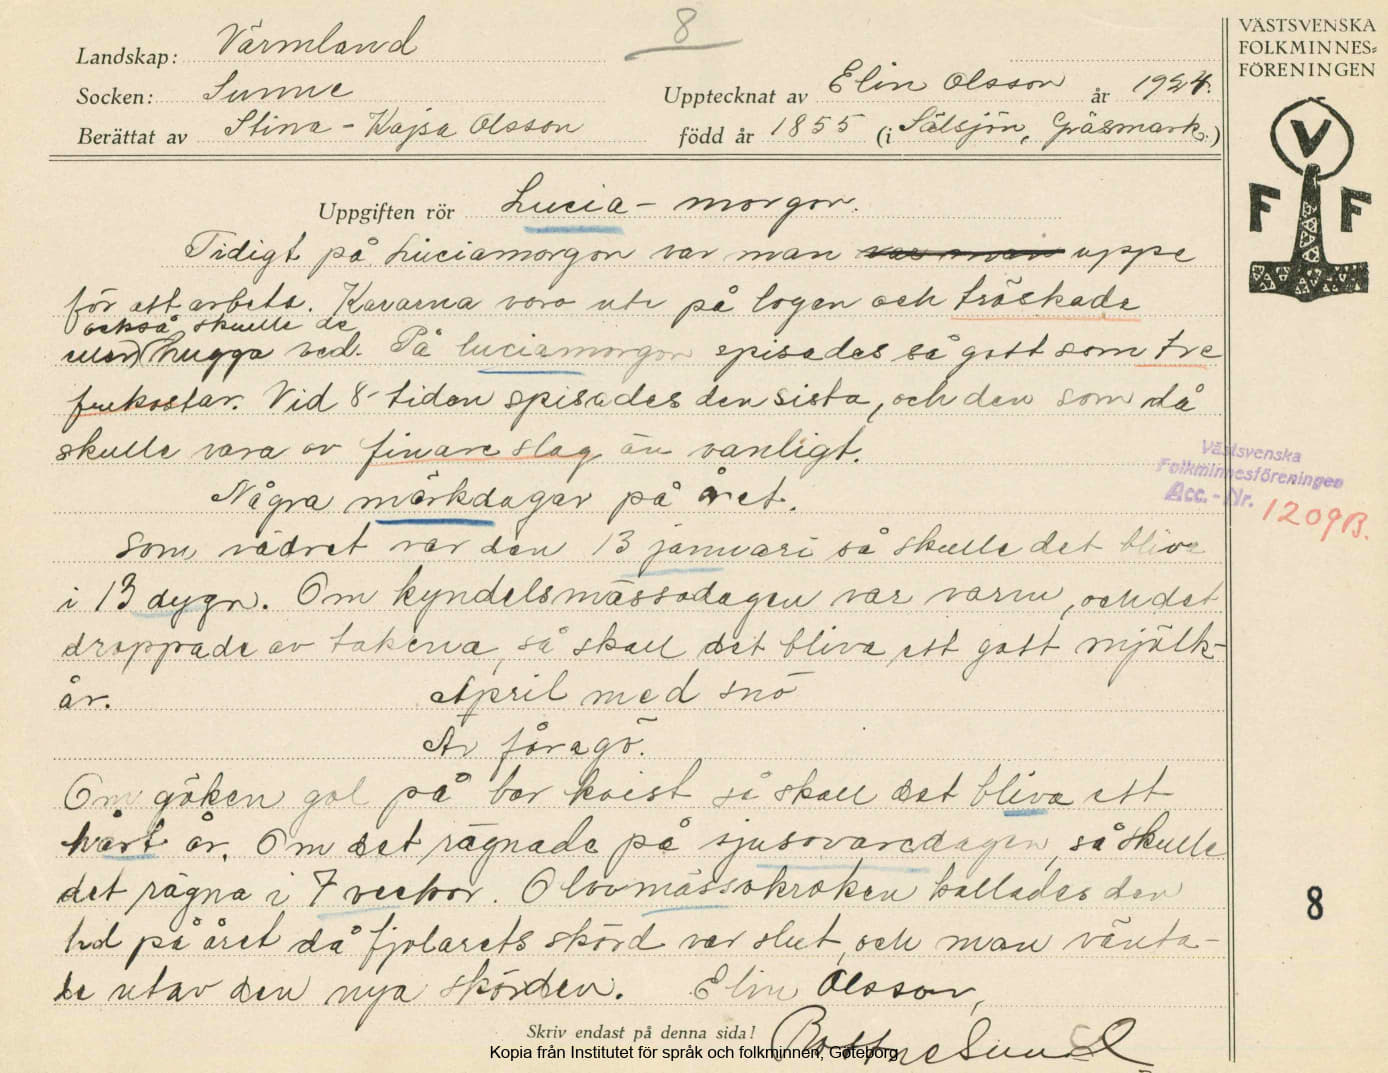 8
Landskap: Värmland
Socken: Sunne
Upptecknat av Elin Olsson år 1924.
Berättat av Stina-Kajsa Olsson
född år 1855 (i Sälsjön, Gräsmark.)
VÄSTSVENSKA
FOLKMINNES=
FÖRENINGEN
V
F F
Uppgiften rör Lucia-morgon.
Tidigt på Luciamorgon var man var man uppe
för att arbeta. Kararna voro ute på logen och tröskade
också skulle de
hugga ved. På luciamorgon spisades så gott som tre
frukostar. Vid 8-tiden spisades den sista, och den som då
skulle vara av finare slag än vanligt.
Några märkdagar på året.
Som vädret var den 13 januari så skulle det bliva
i 13 dygn. Om kyndelsmässodagen var varm, och det
droppade av takena, så skall det bliva ett gott mjölk-
år. April med snö
Av föragö.
Om göken gol på bar kvist så skall det bliva ett
hårt år. Om det rägnade på sjusovaredagen, så skulle
det rägna i 7 veckor. Olovmässokroken kallades den
tid på året då fjolarets skörd var slut, och man vänta-
de utav den nya skörden. Elin Olsson,
Rottne Sund
Skriv endast på denna sida!
Kopia från Institutet för språk och folkminnen, Göteborg
Västsvenska
Folkminnesföreningen
Acc.-Nr. 1209B.
8